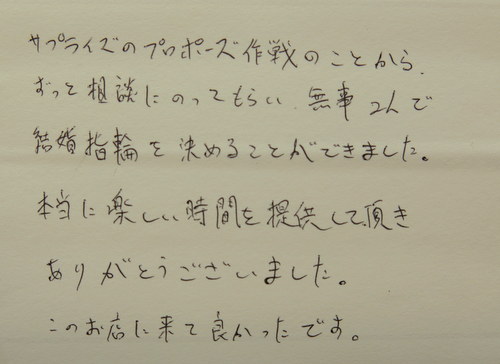 サプライズのプロポーズ作戦のことから、
ずっと相談にのってもらい、無事2人で
結婚指輪を決めることができました。
本当に楽しい時間を提供して頂き
ありがとうございました。
このお店に来て良かったです。